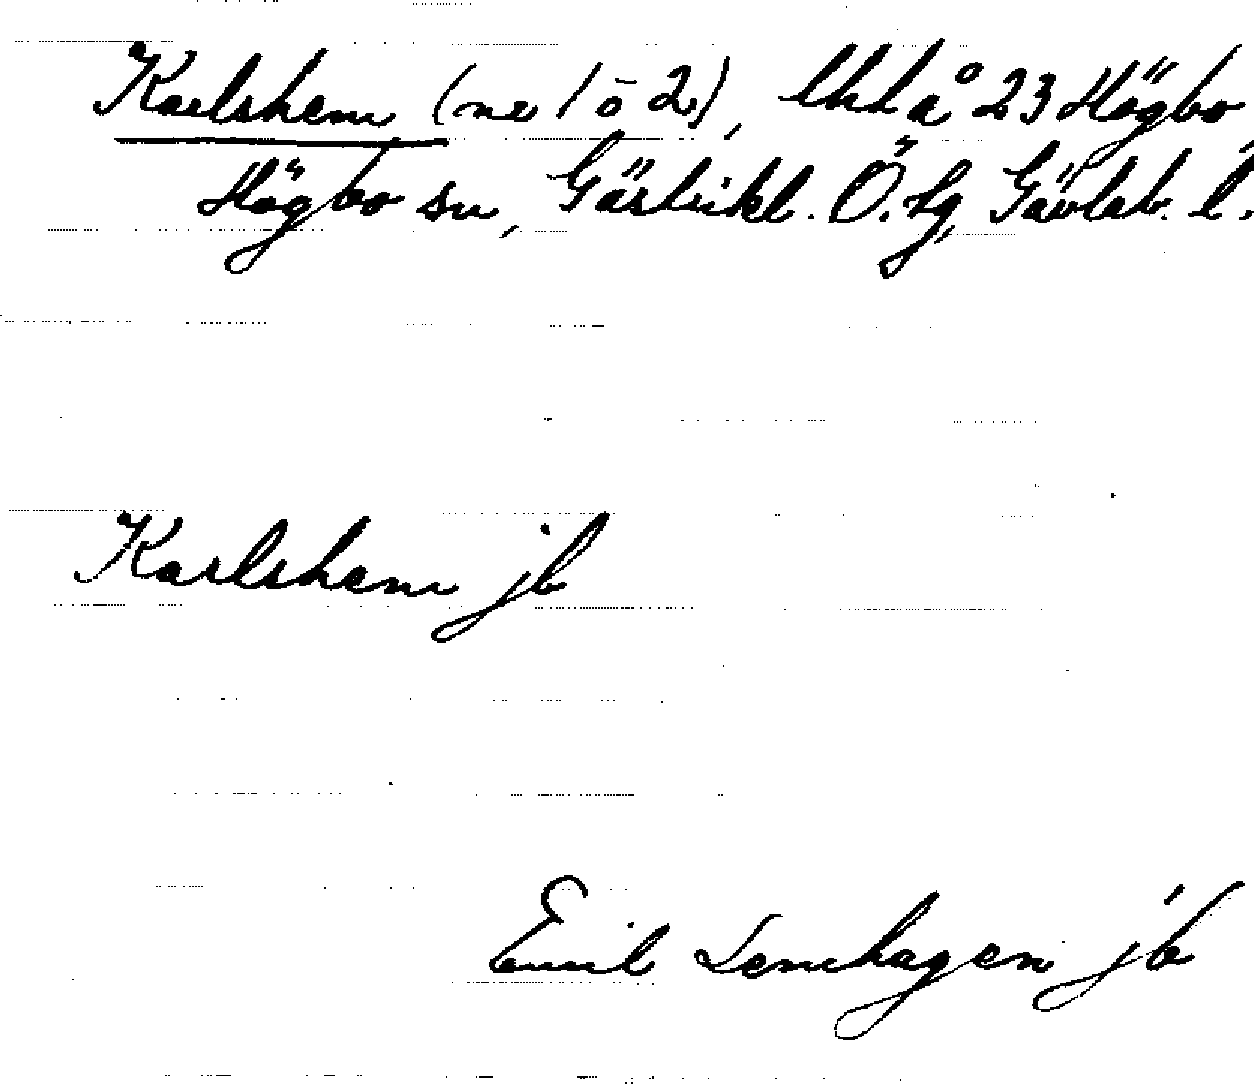 Karlshem (nr 1 o 2), lht å 23 Högbo
Högbo sn, Gästrikl. Ö. tg, Gävleb. l.
Karlshem jb
Emil Lenhagen jb